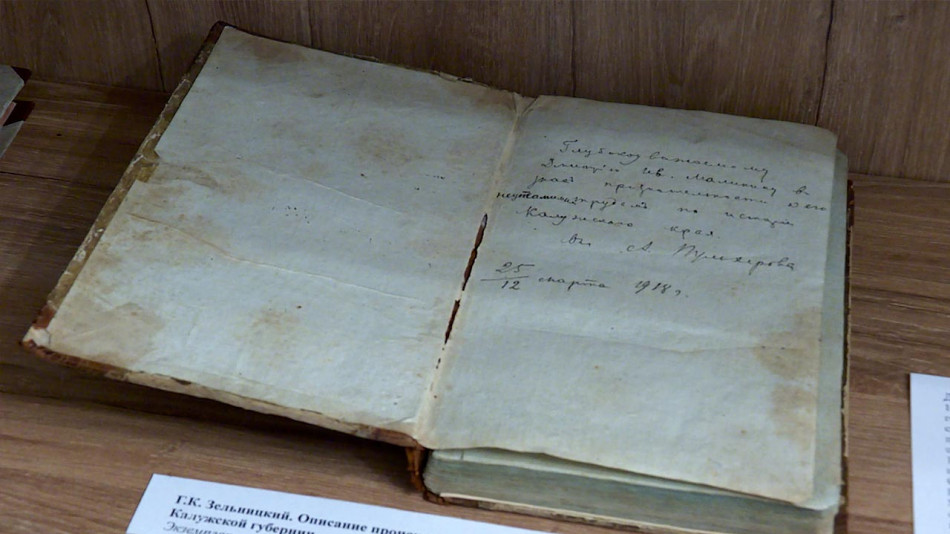 Глубокоуважаемому
Дмитрию Ив. Малинину в
знак признательности к его
неутомимым трудам по истории
Калужского края
от А. Пульхерова
25/12 марта 1918 г.
Г.К. Зельницкий. Описание
Калужской губернии